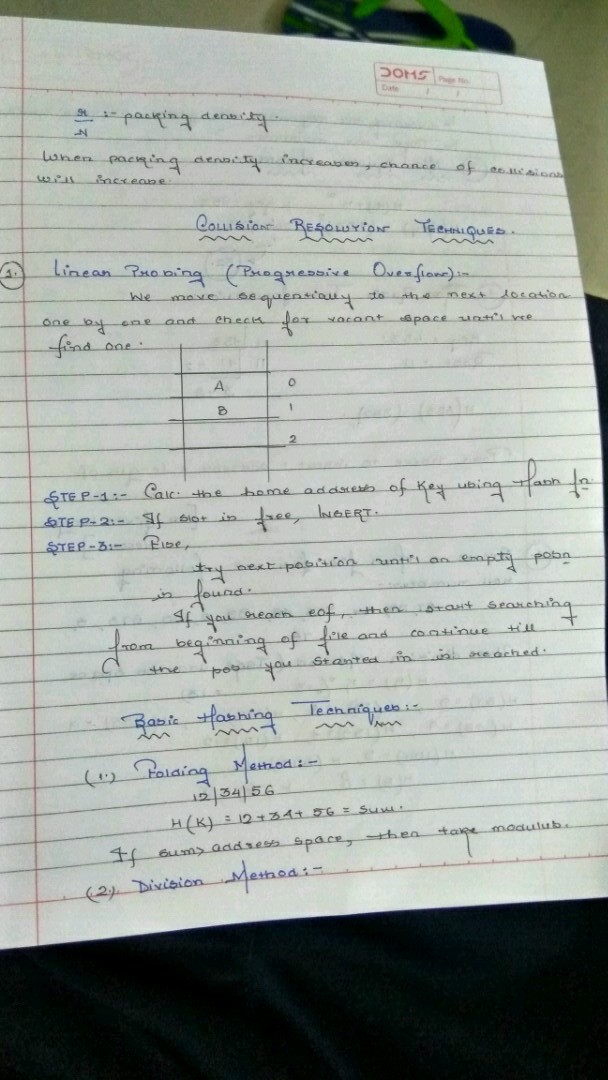 DOMS
Page No.
Date / /
r/N :- packing density.
When packing density increases, chance of collisions
will increase.
COLLISION RESOLUTION TECHNIQUES.
1. Linear Probing (Progressive Overflow):-
We move sequentially to the next location
one by one and check for vacant space until we
find one.
A 0
B 1
2
STEP-1:- Calc. the home address of key using Hash fn
STEP-2:- If slot is free, INSERT.
STEP-3:- Else,
try next position until an empty posn
is found.
If you reach eof, then start searching
from beginning of file and continue till
the pos you started in is reached.
Basic Hashing Techniques:-
(1.) Folding Method:-
12|34|56
H(K) = 12+34+56 = sum.
If sum> address space, then take modulus.
(2.) Division Method:-